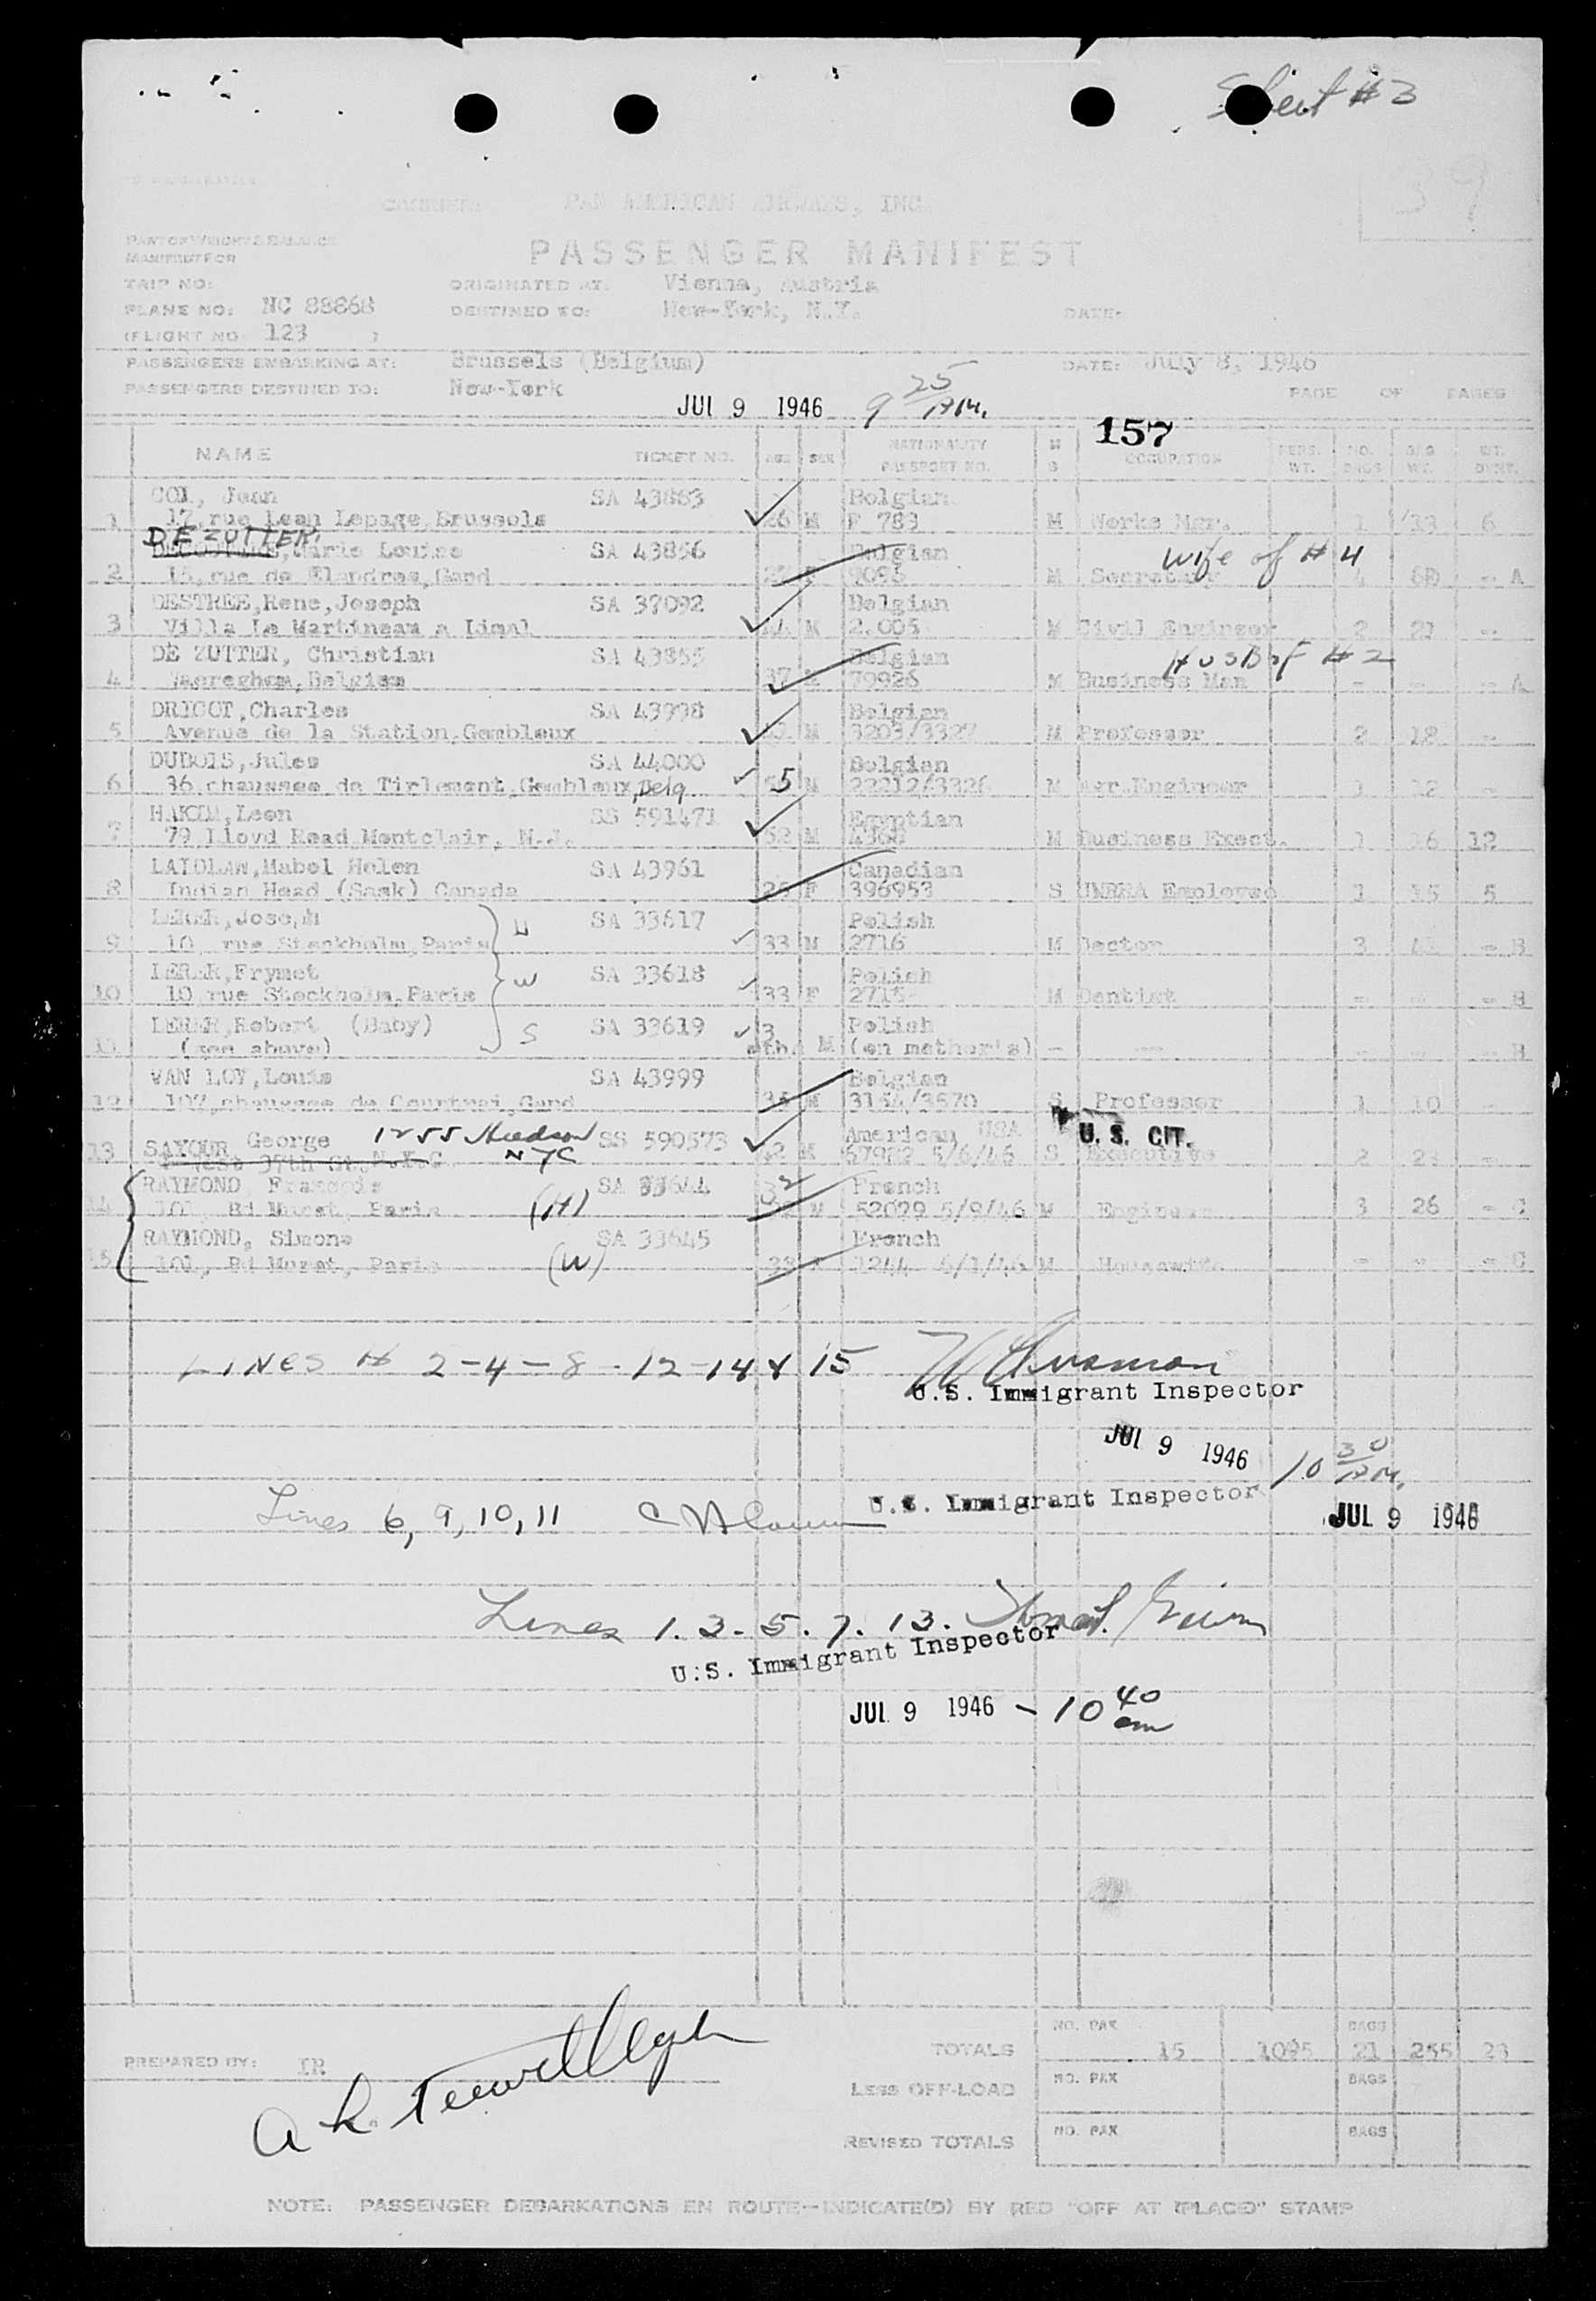 Sheet #3
39
PAN AMERICAN AIRWAYS, INC.
PART OF WEIGHT & BALANCE
MANIFEST FOR
PASSENGER MANIFEST
TRIP NO:
ORIGINATED AT: Vienna, Austria
PLANE NO: NC 88868
DESTINED TO: New-York, N.Y.
DATE:
(FLIGHT NO 123 )
PASSENGERS EMBARKING AT: Brussels (Belgium)
DATE: July 8, 1946
PASSENGERS DESTINED TO: New-York
PAGE OF PAGES
JUL 9 1946 9 25 AM.
157
NAME TICKET NO. AGE SEX NATIONALITY PASSPORT NO. M S OCCUPATION PERS. WT. NO. BAGS BAG WT. WT.
Jean SA 43863 Belgian
1 17, rue Leon Lepage, Brussels 26 M F 783 M Works Mgr. 1 33 6
DE ZUTTER,
Marie Louise SA 43856 Belgian wife of #4
2 15, rue de Flandres, Gand F M Secretary 4 - A
DESTREE, Rene, Joseph SA 37092 Belgian
3 Villa Le Martineau a Limal M 2.005 M Civil Engineer 2 -
DE ZUTTER, Christian SA 43855 Belgian Husb of #2
4 Waereghem, Belgium 37 79926 M Business Man - - - A
DRICOT, Charles SA 43998 Belgian
5 Avenue de la Station, Gembloux M 3203/3327 M Professor 2 18 -
DUBOIS, Jules SA 44000 Belgian
6 36, chaussee de Tirlemont, Gembloux, Belg 5 M 22212/3326 M Agr. Engineer 12 -
HAKIM, Leon SS 591471 Egyptian
7 79 Lloyd Road, Montclair, N.J. 52 M 4368 M Business Exect. 1 16 12
LAIDLAW, Mabel Helen SA 43961 Canadian
8 Indian Head (Sask) Canada F 396953 S UNRRA Employee 1 15 5
LERER, Joseph SA 33617 Polish
9 10, rue Stockholm, Paris 33 M 2716 M Doctor 3 - B
LERER, Frymet W SA 33618 Polish
10 10 rue Stockholm, Paris 33 F M Dentist - - - B
LERER, Robert (Baby) S SA 33619 3 Polish
11 (see above) mth. M (on mother's) - - - - B
VAN LOY, Louis SA 43999 Belgian
12 107, chaussee de Courtrai, Gand M 3154/3570 S Professor 1 10 -
U. S. CIT.
13 SAYOUR George 1255 Hudson NYC SS 590573 42 M American USA 5/6/46 S Executive 2 -
RAYMOND Francois SA 33644 32 French
14 101, Bd Murat, Paris (H) M 52029 5/9/46 M Engineer 3 26 - C
RAYMOND, Simone SA 33645 French
15 101, Bd Murat, Paris (W) 1244 6/1/46 M Housewife - - - C
LINES # 2-4-8-12-14 & 15
U.S. Immigrant Inspector
JUL 9 1946 10 30 AM.
Lines 6, 9, 10, 11 U.S. Immigrant Inspector
JUL 9 1946
Lines 1. 3. 5. 7. 13.
U.S. Immigrant Inspector
JUL 9 1946 - 10 40 am
NO. PAX BAGS
TOTALS 15 1095 21 255 23
PREPARED BY: IR
LESS OFF-LOAD NO. PAX BAGS
REVISED TOTALS NO. PAX BAGS
NOTE: PASSENGER DEBARKATIONS EN ROUTE--INDICATE(D) BY RED "OFF AT (PLACE)" STAMP